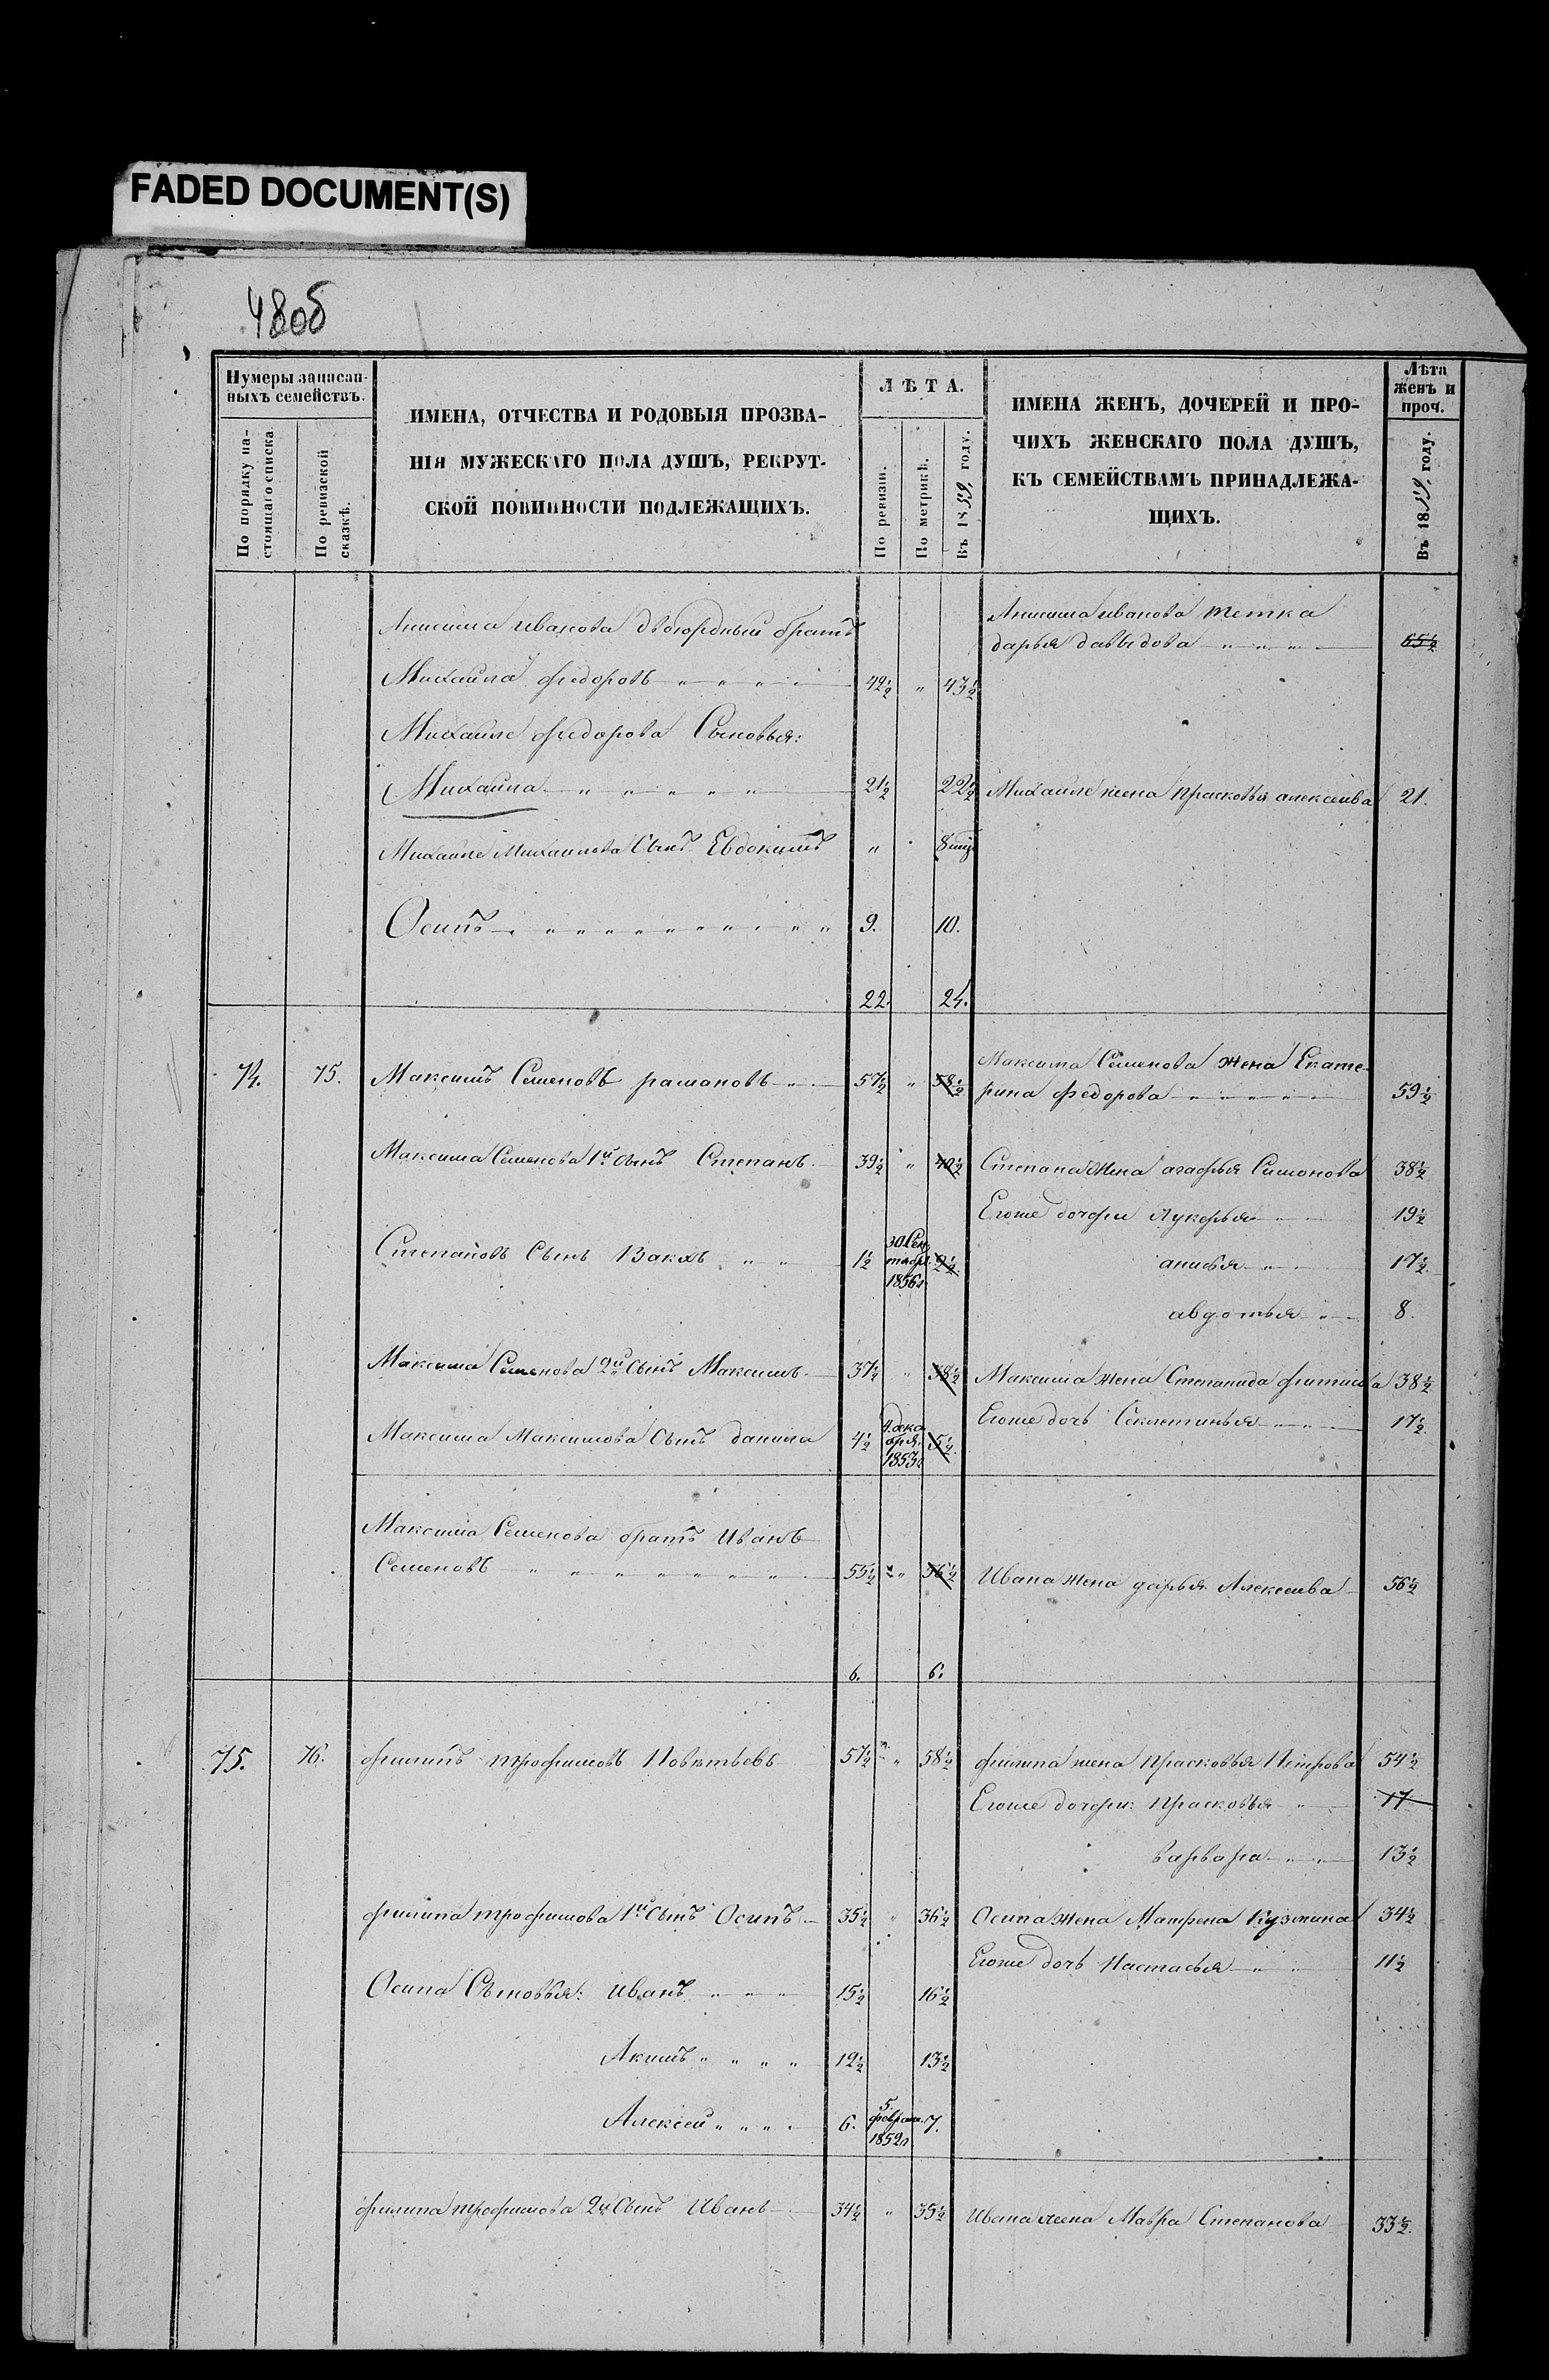 FADED DOCUMENT(S)
48об
Нумеры записан-
ныхъ семействъ.
По порядку на-
стоящаго списка
По ревизской
сказкѣ.
ИМЕНА, ОТЧЕСТВА И РОДОВЫЯ ПРОЗВА-
НІЯ МУЖЕСКАГО ПОЛА ДУШЪ, РЕКРУТ-
СКОЙ ПОВИННОСТИ ПОДЛЕЖАЩИХЪ.
ЛѢТА.
По ревизіи.
По метрикѣ.
Въ 1859, году.
ИМЕНА ЖЕНЪ, ДОЧЕРЕЙ И ПРО-
ЧИХЪ ЖЕНСКАГО ПОЛА ДУШЪ,
КЪ СЕМЕЙСТВАМЪ ПРИНАДЛЕЖА-
ЩИХЪ.
Лѣта
женъ и
проч.
Въ 1859, году.
Анисима иванова двоюрдный братъ
Анисима иванова тетка
дарья давыдова 65½
Михайла федоровъ 42½ " 43½
Михайле федорова Сыновья:
Михайла 21½ 22½ Михайле жена прасковья алексеива 21.
Михайле Михайлова Сынъ Евдокимъ " 8 мц
Осипъ 9. 10.
22. 24.
74. 75. Максимъ Семеновъ рамановъ 57½ " 58½
Максима Семенова жена Екате-
рина федорова 59½
Максима Семенова 1й Сынъ Степанъ 39½ " 40½ Степана жена агафья Симонова 38½
Егоже дочери лукерья 19½
Степановъ Сынъ Вакхъ 1½ 30 Сен
тября
1856г 2½ анисья 17½
авдотья 8.
Максима Семенова 2й Сынъ Максимъ 37½ " 38½ Максима жена Степанида филипова 38½
Егоже дочь Секлетинья 17½
Максима Максимова Сынъ данила 4½ 4. дека
бря
1853г 5½
Максима Семенова братъ Иванъ
Семеновъ 55½ " 56½ Ивана жена дарья Алексеива 56½
6. 6.
75. 76. филипъ трофимовъ 57½ " 58½ филипа жена прасковья Петрова 54½
Егоже дочери: прасковья 17
варвара 13½
филипа трофимова 1й Сынъ Осипъ 35½ " 36½ Осипа жена Матрена Кузмина 34½
Егоже дочь Настасья 11½
Осипа Сыновья: иванъ 15½ 16½
Акимъ 12½ 13½
Алексей 6. 5.
феврал.
1852г 7.
филипа трофимова 2й Сынъ Иванъ 34½ " 35½ Ивана жена Мавра Степанова 33½